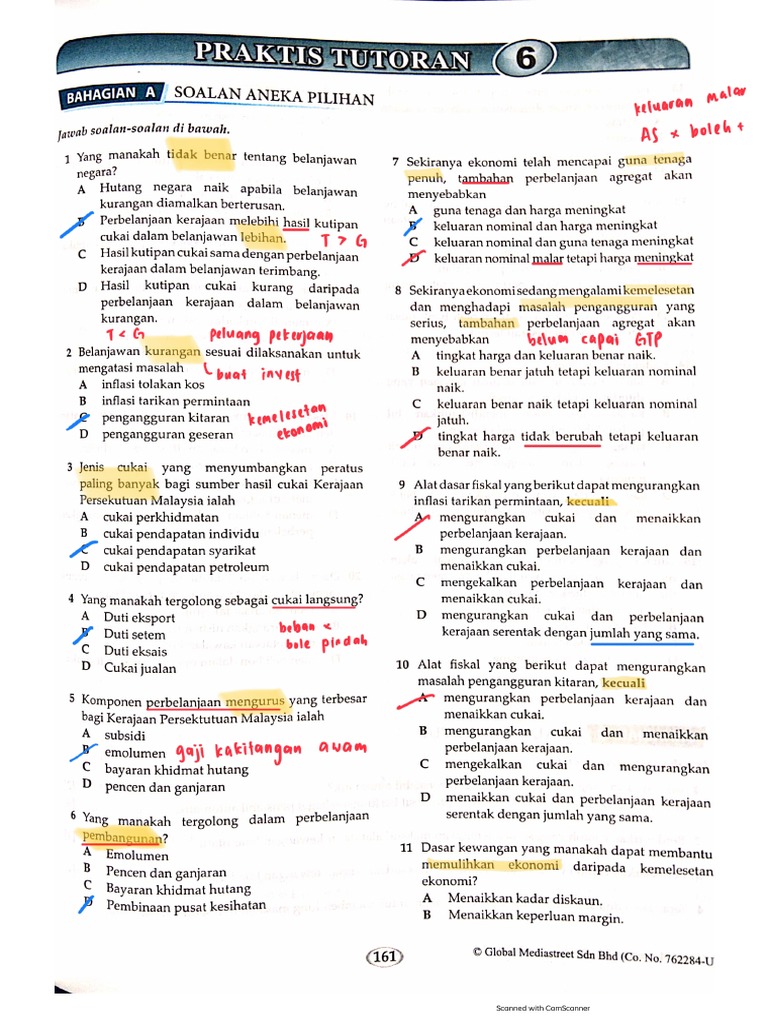 PRAKTIS TUTORAN 6
BAHAGIAN A SOALAN ANEKA PILIHAN
keluaran malar
AS x boleh +
Jawab soalan-soalan di bawah.
1 Yang manakah tidak benar tentang belanjawan
negara?
A Hutang negara naik apabila belanjawan
kurangan diamalkan berterusan.
B Perbelanjaan kerajaan melebihi hasil kutipan
cukai dalam belanjawan lebihan.
T > G
C Hasil kutipan cukai sama dengan perbelanjaan
kerajaan dalam belanjawan terimbang.
D Hasil kutipan cukai kurang daripada
perbelanjaan kerajaan dalam belanjawan
kurangan.
T < G peluang pekerjaan
2 Belanjawan kurangan sesuai dilaksanakan untuk
mengatasi masalah
buat invest
A inflasi tolakan kos
B inflasi tarikan permintaan
C pengangguran kitaran
kemelesetan
ekonomi
D pengangguran geseran
3 Jenis cukai yang menyumbangkan peratus
paling banyak bagi sumber hasil cukai Kerajaan
Persekutuan Malaysia ialah
A cukai perkhidmatan
B cukai pendapatan individu
C cukai pendapatan syarikat
D cukai pendapatan petroleum
4 Yang manakah tergolong sebagai cukai langsung?
A Duti eksport
B Duti setem
beban x
bole pindah
C Duti eksais
D Cukai jualan
5 Komponen perbelanjaan mengurus yang terbesar
bagi Kerajaan Persektutuan Malaysia ialah
A subsidi
B emolumen
gaji kakitangan awam
C bayaran khidmat hutang
D pencen dan ganjaran
6 Yang manakah tergolong dalam perbelanjaan
pembangunan?
A Emolumen
B Pencen dan ganjaran
C Bayaran khidmat hutang
D Pembinaan pusat kesihatan
7 Sekiranya ekonomi telah mencapai guna tenaga
penuh, tambahan perbelanjaan agregat akan
menyebabkan
A guna tenaga dan harga meningkat
B keluaran nominal dan harga meningkat
C keluaran nominal dan guna tenaga meningkat
D keluaran nominal malar tetapi harga meningkat
8 Sekiranya ekonomi sedang mengalami kemelesetan
dan menghadapi masalah pengangguran yang
serius, tambahan perbelanjaan agregat akan
menyebabkan
belum capai GTP
A tingkat harga dan keluaran benar naik.
B keluaran benar jatuh tetapi keluaran nominal
naik.
C keluaran benar naik tetapi keluaran nominal
jatuh.
D tingkat harga tidak berubah tetapi keluaran
benar naik.
9 Alat dasar fiskal yang berikut dapat mengurangkan
inflasi tarikan permintaan, kecuali
A mengurangkan cukai dan menaikkan
perbelanjaan kerajaan.
B mengurangkan perbelanjaan kerajaan dan
menaikkan cukai.
C mengekalkan perbelanjaan kerajaan dan
menaikkan cukai.
D mengurangkan cukai dan perbelanjaan
kerajaan serentak dengan jumlah yang sama.
10 Alat fiskal yang berikut dapat mengurangkan
masalah pengangguran kitaran, kecuali
A mengurangkan perbelanjaan kerajaan dan
menaikkan cukai.
B mengurangkan cukai dan menaikkan
perbelanjaan kerajaan.
C mengekalkan cukai dan mengurangkan
perbelanjaan kerajaan.
D menaikkan cukai dan perbelanjaan kerajaan
serentak dengan jumlah yang sama.
11 Dasar kewangan yang manakah dapat membantu
memulihkan ekonomi daripada kemelesetan
ekonomi?
A Menaikkan kadar diskaun.
B Menaikkan keperluan margin.
161
© Global Mediastreet Sdn Bhd (Co. No. 762284-U
Scanned with CamScanner